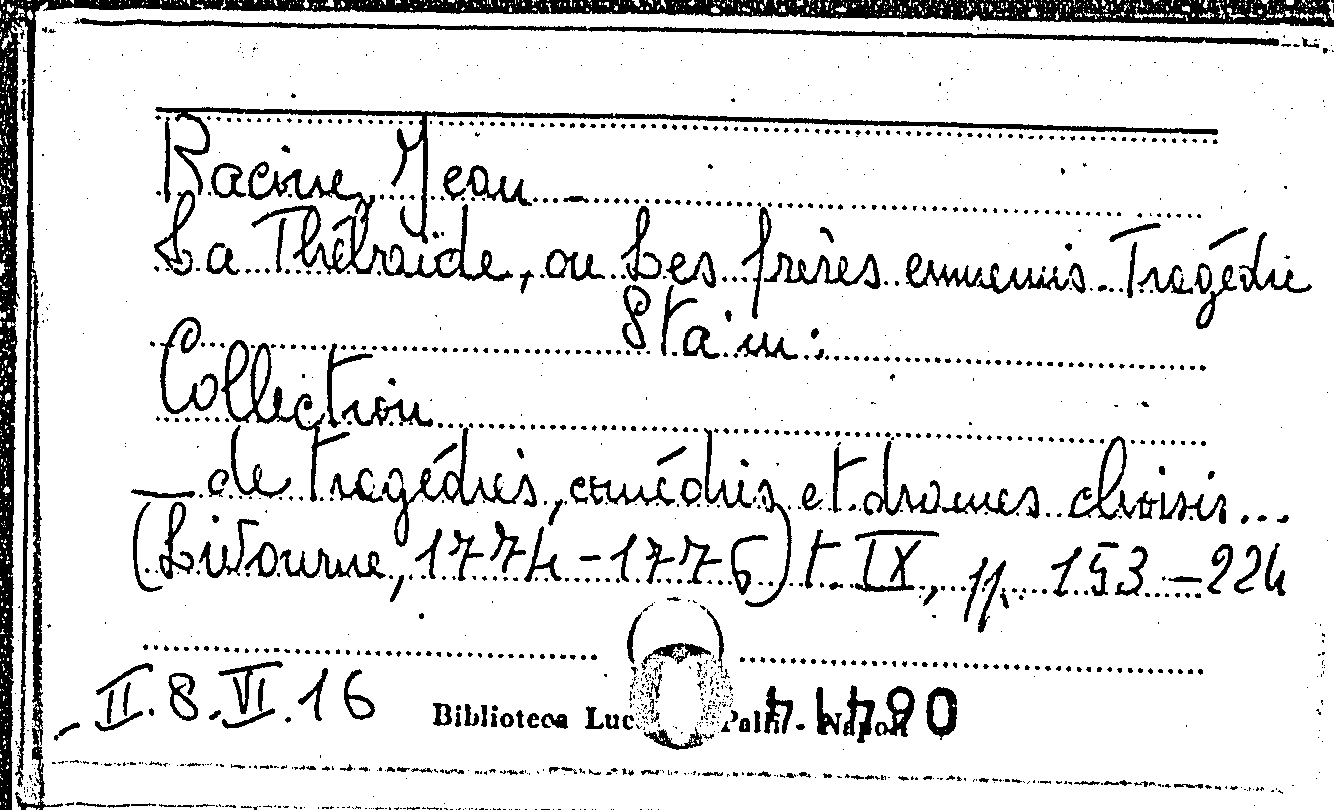 Racine, Jean -
La Thébaïde, ou Les frères ennemis. Tragédie
Sta in:
Collection
_ de tragédies, comédies et drames choisis...
(Livourne, 1774-1776) t. IX, pp. 153-224
II.8.VI.16
Biblioteca Palli - Napoli